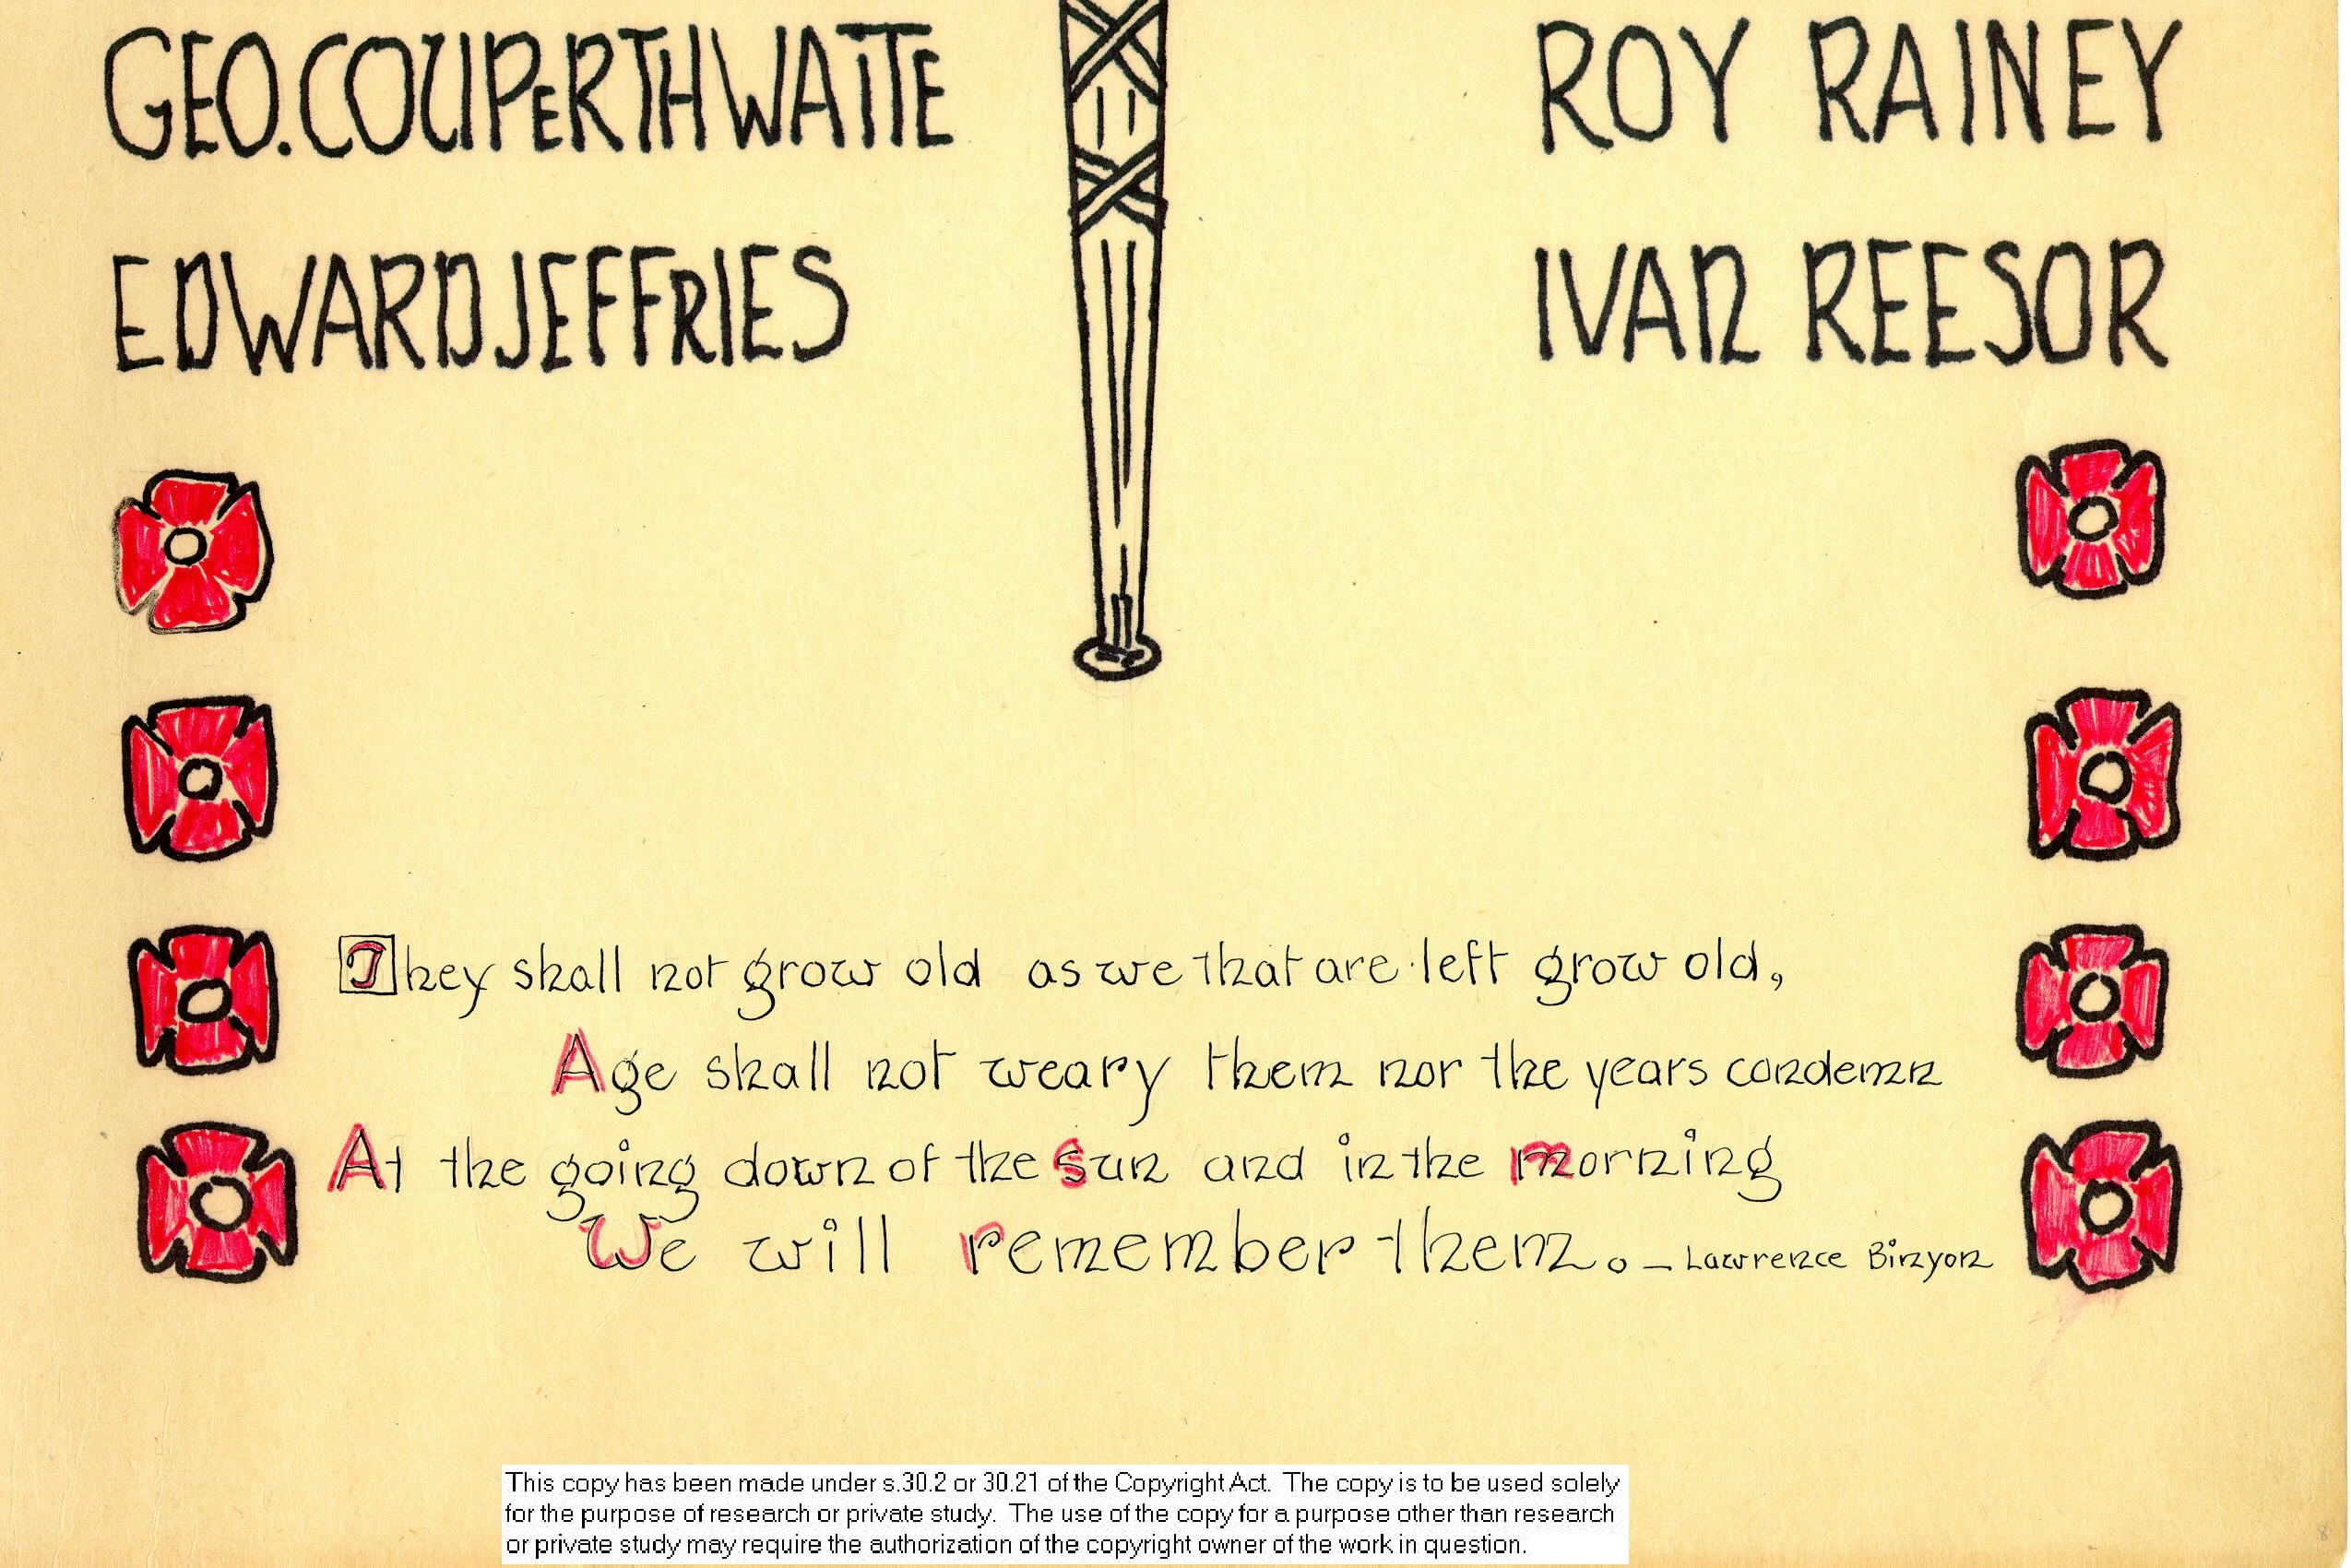 GEO. COUPERTHWAITE
ROY RAINEY
EDWARD JEFFRIES
IVAN REESOR
They shall not grow old as we that are left grow old,
Age shall not weary them nor the years condemn
At the going down of the sun and in the morning
We will remember them. - Lawrence Binyon
This copy has been made under s.30.2 or 30.21 of the Copyright Act. The copy is to be used solely
for the purpose of research or private study. The use of the copy for a purpose other than research
or private study may require the authorization of the copyright owner of the work in question.